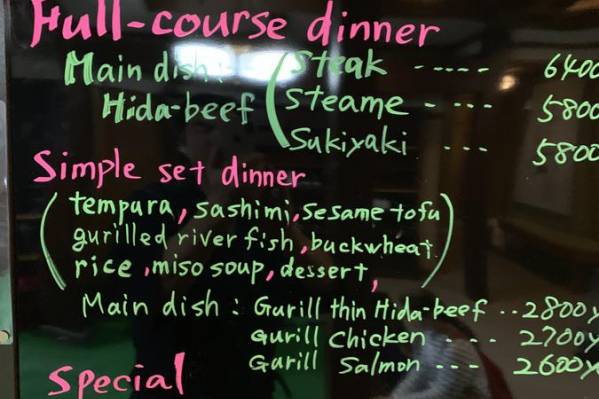 Full-course dinner
Main dish: Steak ----- 6400
Hida-beef Steame - --- 5800
Sukiyaki --- 5800
Simple set dinner
(tempura, sashimi, sesame tofu
gurilled river fish, buckwheat
rice, miso soup, dessert,)
Main dish: Gurill thin Hida-beef ..2800y
Gurill chicken --- 2700y
Gurill Salmon --- 2600y
Special